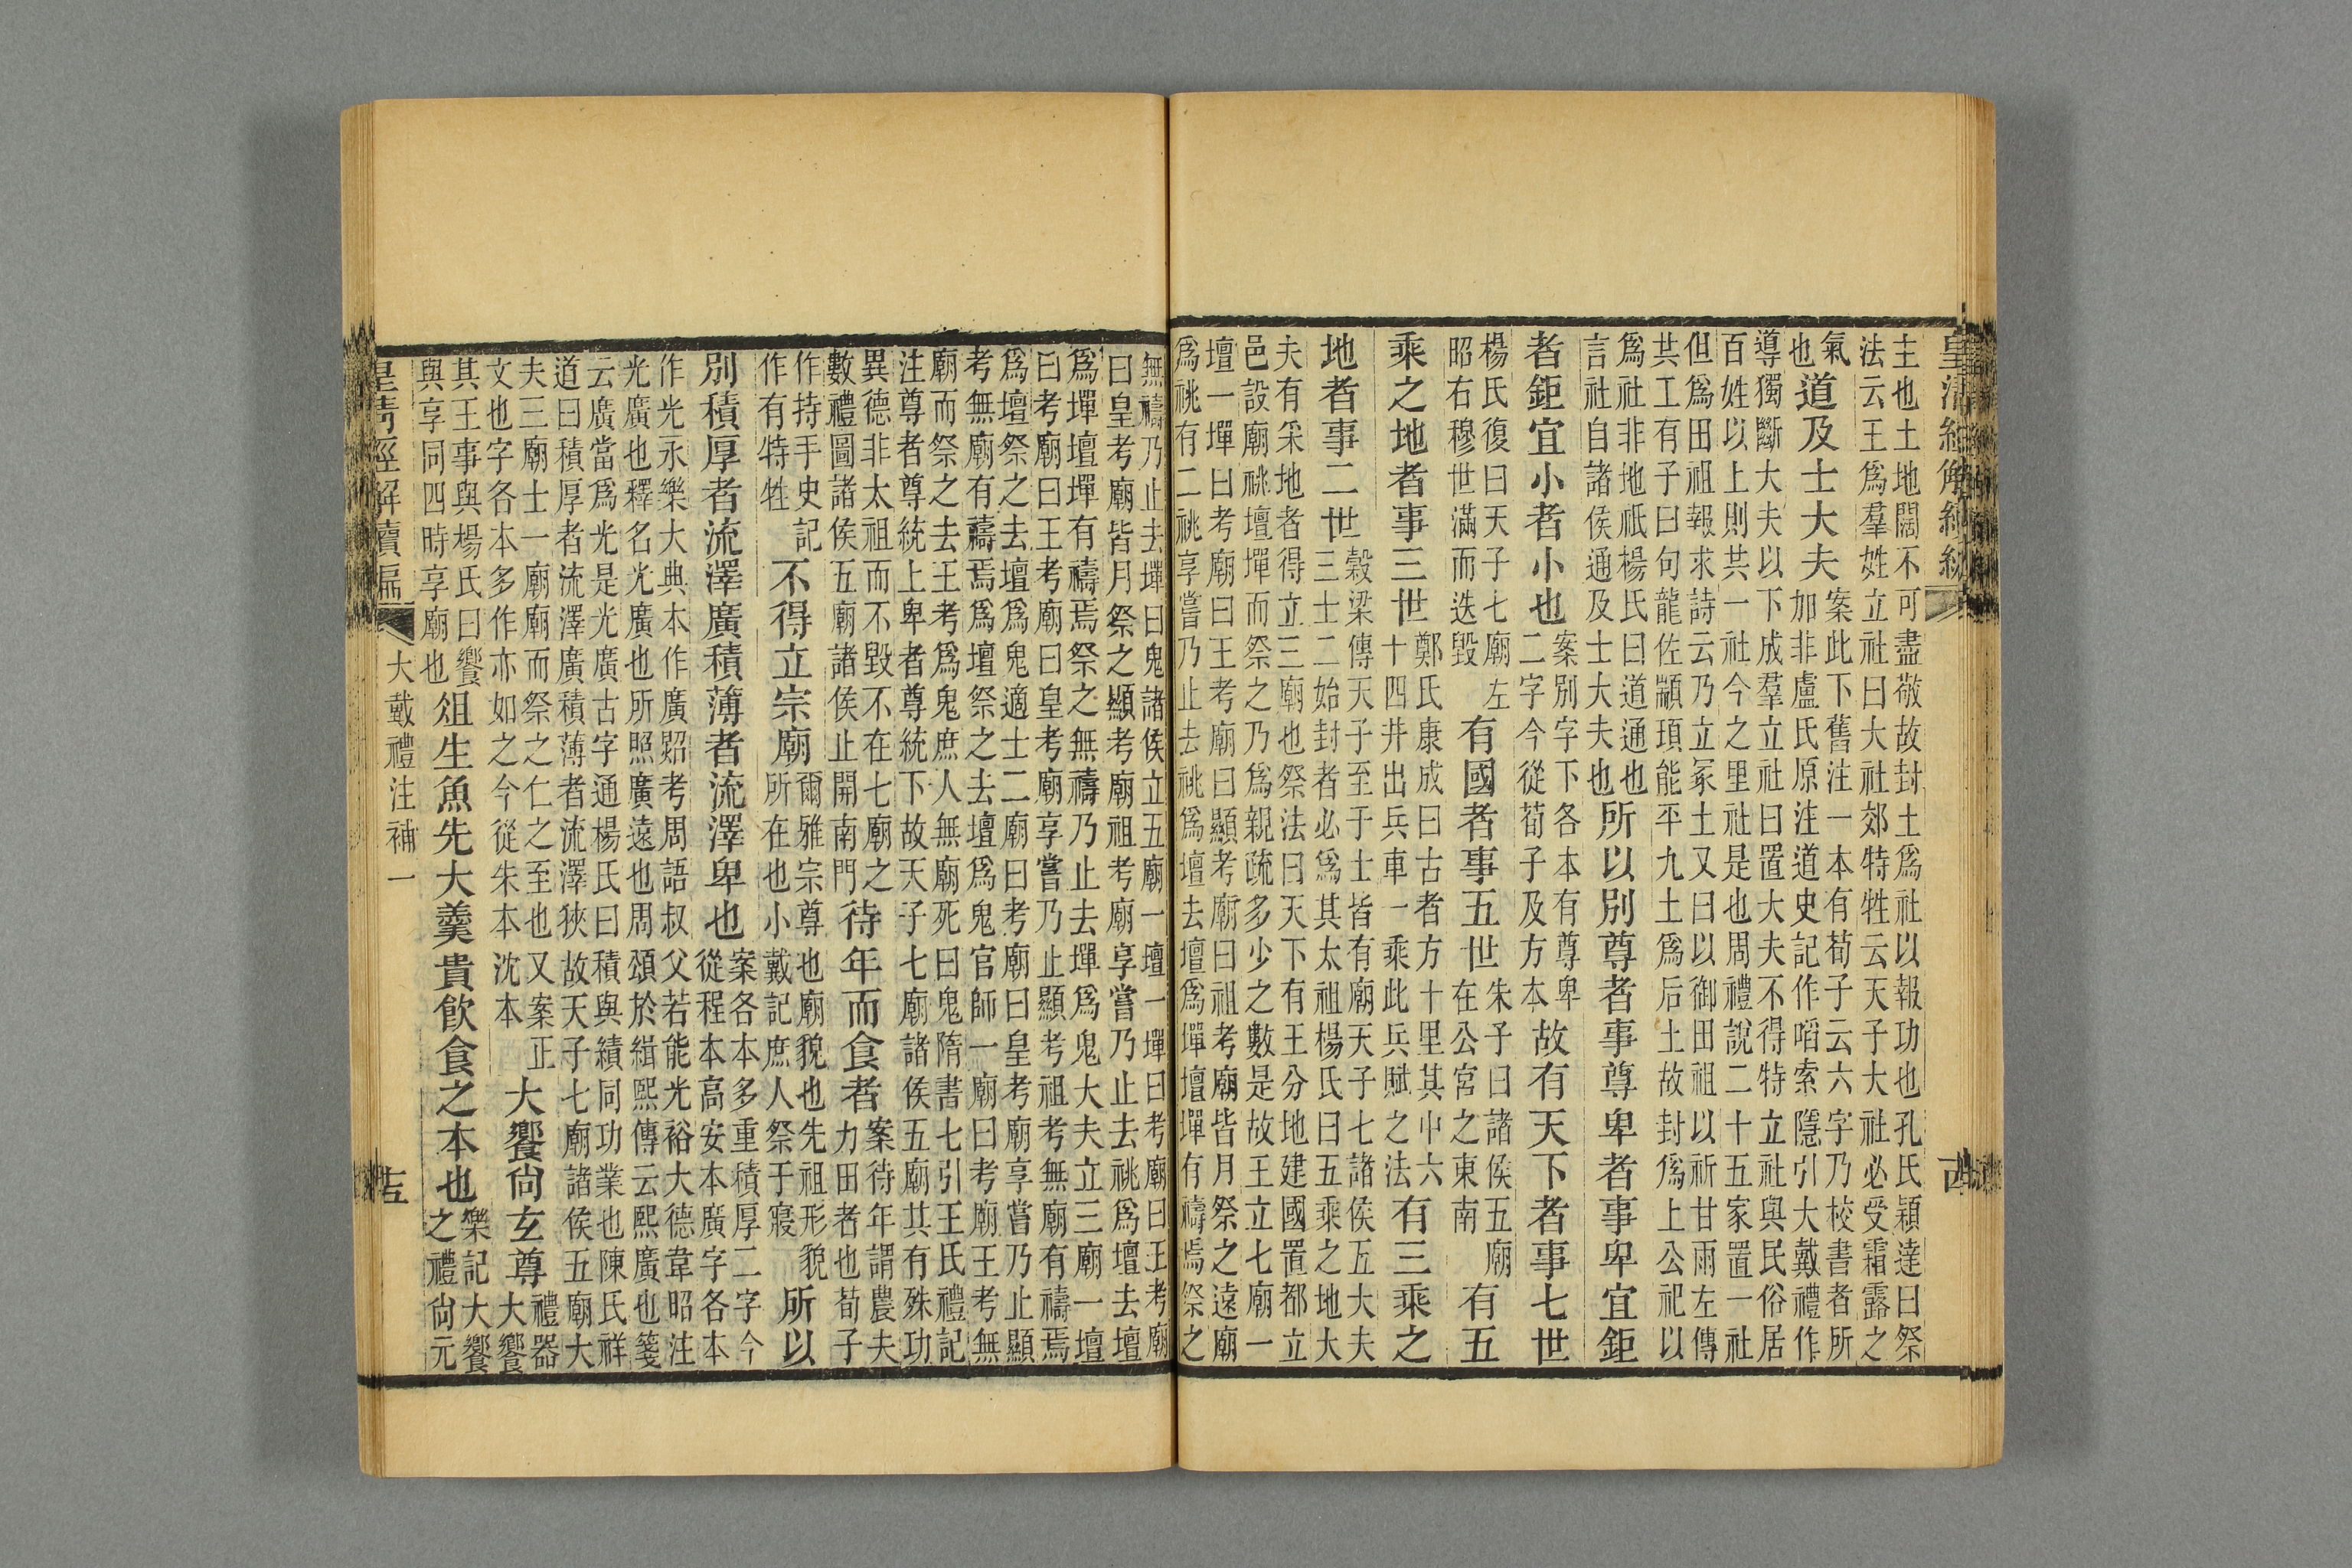 皇清經解續編
主也土地闊不可盡敬故封土爲社以報功也孔氏穎達曰祭
法云王爲羣姓立社曰大社郊特牲云天子大社必受霜露之
氣也道及士大夫案此下舊注一本有荀子云六字乃校書者所加非盧氏原注道史記作啗索隱引大戴禮作
導獨斷大夫以下成羣立社曰置大夫不得特立社與民俗居
百姓以上則共一社今之里社是也周禮說二十五家置一社
但爲田祖報求詩云乃立冢土又曰以御田祖以祈甘雨左傳
共工有子曰句龍佐顓頊能平九土爲后土故封爲上公祀以
爲社非地祇楊氏曰道通也言社自諸侯通及士大夫也所以別尊者事尊卑者事卑宜鉅
者鉅宜小者小也案別字下各本有尊卑二字今從荀子及方本故有天下者事七世
楊氏復曰天子七廟左昭右穆世滿而迭毀有國者事五世朱子曰諸侯五廟在公宮之東南有五
乘之地者事三世鄭氏康成曰古者方十里其中六十四井出兵車一乘此兵賦之法有三乘之
地者事二世穀梁傳天子至于士皆有廟天子七諸侯五大夫三士二始封者必爲其太祖楊氏曰五乘之地大
夫有采地者得立三廟也祭法曰天下有王分地建國置都立
邑設廟祧壇墠而祭之乃爲親疏多少之數是故王立七廟一
壇一墠曰考廟曰王考廟曰顯考廟曰祖考廟皆月祭之遠廟
爲祧有二祧享嘗乃止去祧爲壇去壇爲墠壇墠有禱焉祭之
無禱乃止去墠曰鬼諸侯立五廟一壇一墠曰考廟曰王考廟
曰皇考廟皆月祭之顯考廟祖考廟享嘗乃止去祧爲壇去壇
爲墠壇墠有禱焉祭之無禱乃止去墠爲鬼大夫立三廟一壇
曰考廟曰王考廟曰皇考廟享嘗乃止顯考祖考無廟有禱焉
爲壇祭之去壇爲鬼適士二廟曰考廟曰皇考廟享嘗乃止顯
考無廟有禱焉爲壇祭之去壇爲鬼官師一廟曰考廟王考無
廟而祭之去王考爲鬼庶人無廟死曰鬼隋書七引王氏禮記
注尊者尊統上卑者尊統下故天子七廟諸侯五廟其有殊功
異德非太祖而不毀不在七廟之數禮圖諸侯五廟諸侯止開南門待年而食者案待年謂農夫力田者也荀子
作持手史記作有特牲不得立宗廟爾雅宗尊也廟貌也先祖形貌所在也小戴記庶人祭于寢所以
別積厚者流澤廣積薄者流澤卑也案各本多重積厚二字今從程本高安本廣字各本
作光永樂大典本作廣貂考周語叔父若能光裕大德韋昭注
光廣也釋名光廣也所照廣遠也周頌於緝熙傳云熙廣也箋
云廣當爲光是光廣古字通楊氏曰積與績同功業也陳氏祥
道曰積厚者流澤廣積薄者流澤狹故天子七廟諸侯五廟大
夫三廟士一廟廟而祭之仁之至也又案正文也字各本多作亦如之今從朱本沈本大饗尙玄尊禮器大饗
其王事與楊氏曰饗與享同四時享廟也俎生魚先大羹貴飮食之本也樂記大饗之禮尙元
皇清經解續編 大戴禮注補一